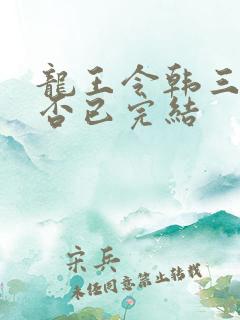 龍王令韩三
否已完結
宋兵
未经同意禁止转载